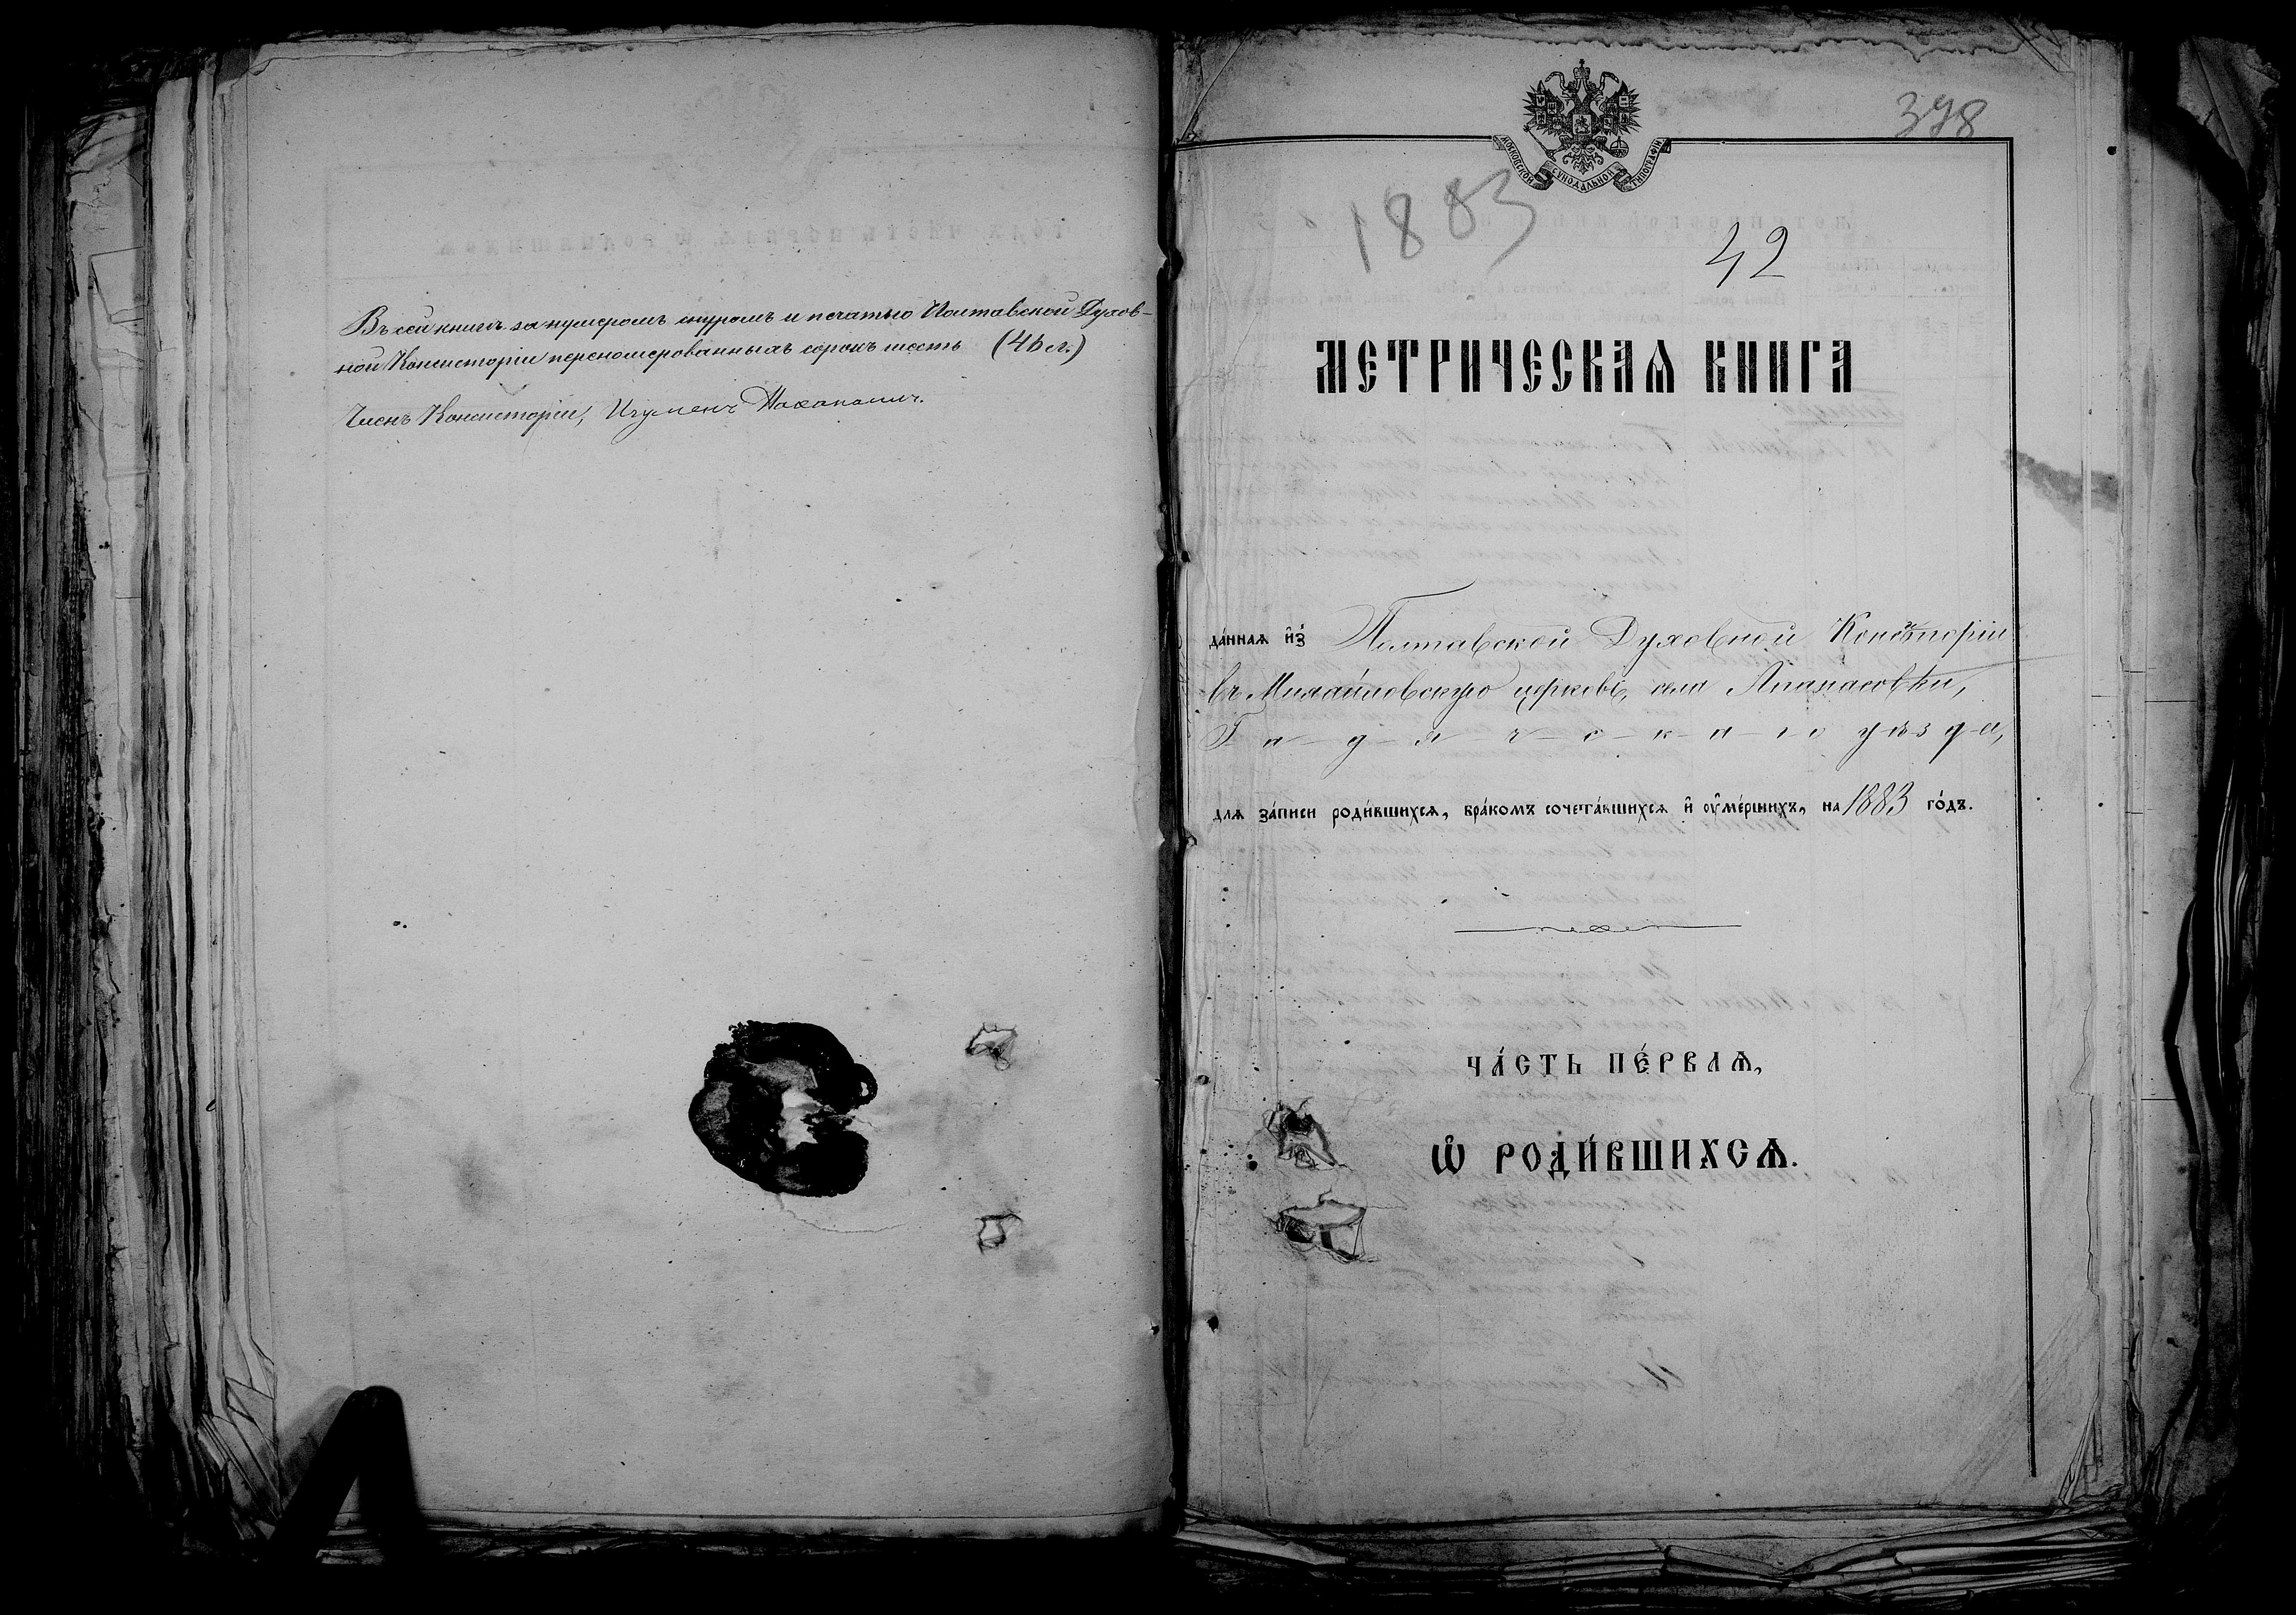 Въ сей книгѣ за нумеромъ шнуромъ и печатью Полтавской Духов-
ной Консисторіи переномерованныхъ сорокъ шесть (46 л.)
Членъ Консисторіи, Игуменъ
398
МОСКОВСКОЙ СУНОДАЛЬНОЙ ТИПОГРАФІИ
1883
42
МЕТРИЧЕСКАѦ КНИГА
да́ннаѧ и҆з̾ Полтавской Духовной Консисторіи
въ Михайловскую церковь, села Апанасовки,
Г-а-д-я-ч-с-к-а-го у-ѣ-з-д-а,
длѧ за́писи роди́вшихсѧ, бра́комъ сочета́вшихсѧ и҆ ᲂу҆ме́ршихъ, на 1883 го́дъ.
ЧА́СТЬ ПЕ́РВАѦ,
Ѽ РОДИ́ВШИХСѦ.